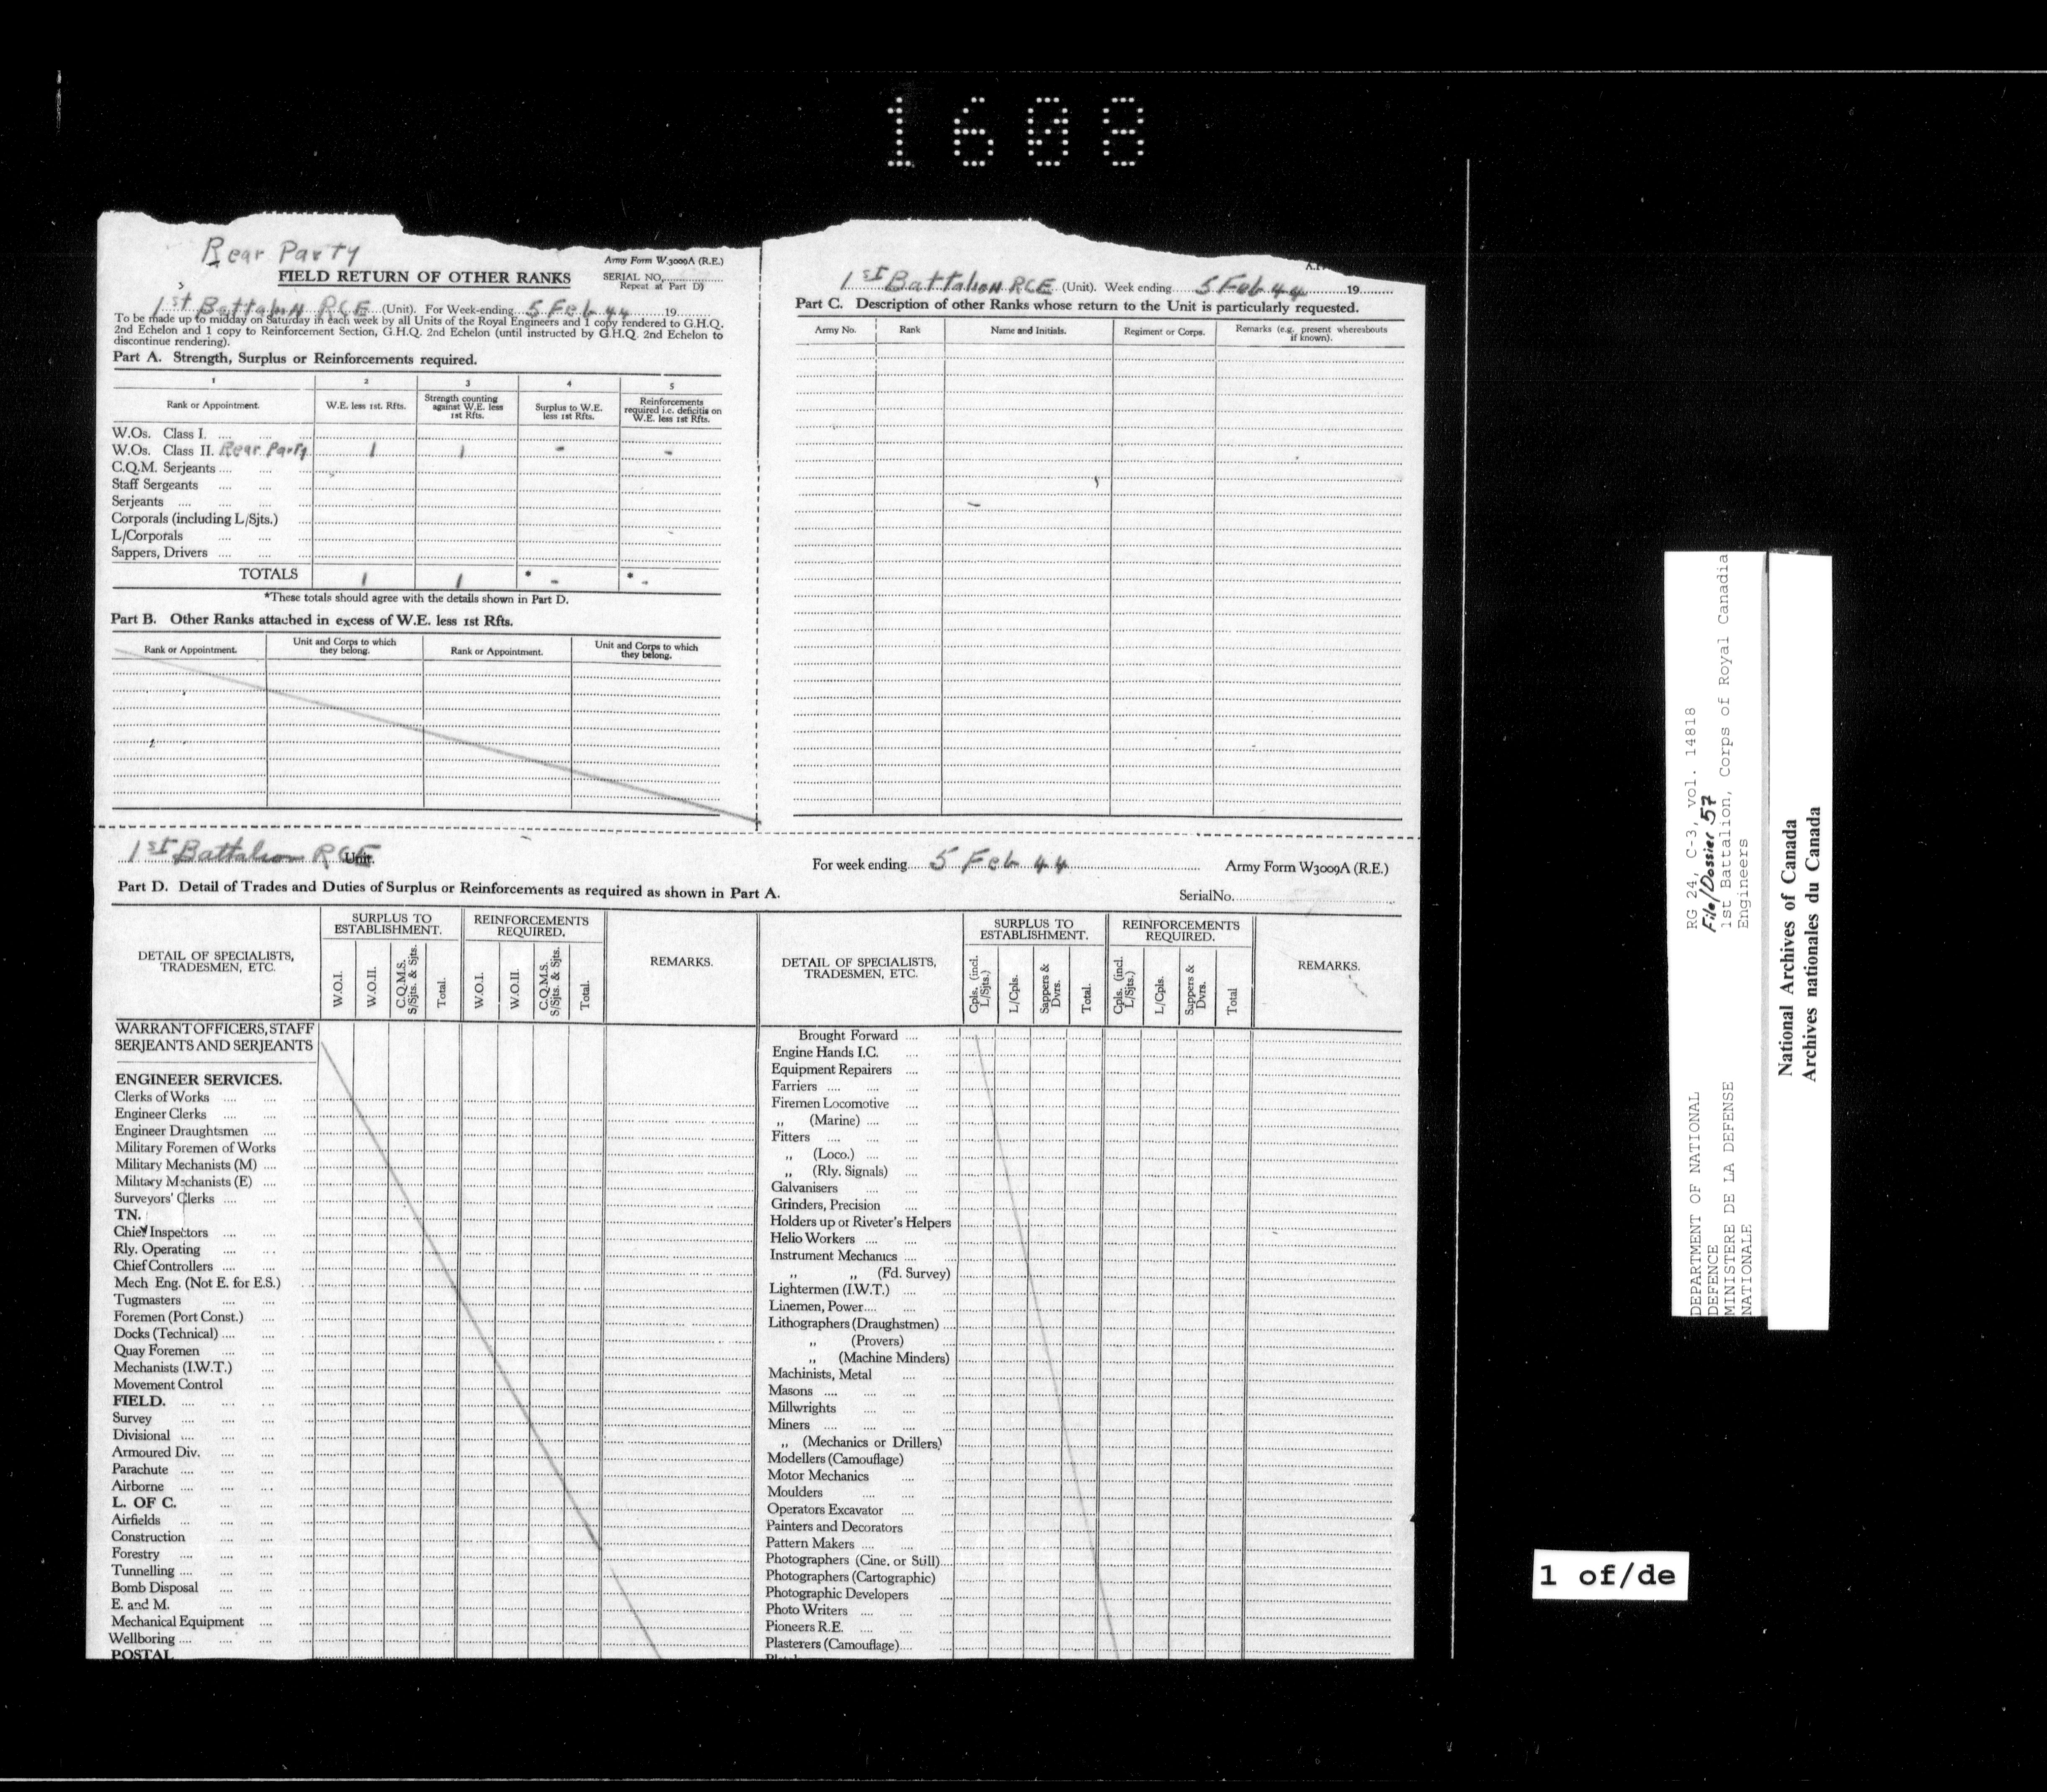 1608
Rear Party
Army Form W.3009A (R.E.)
FIELD RETURN OF OTHER RANKS
SERIAL NO.
Repeat at Part D)
1st Battalion RCE (Unit). For Week-ending 5 Feb 44 19
To be made up to midday on Saturday in each week by all Units of the Royal Engineers and 1 copy rendered to G.H.Q.
2nd Echelon and 1 copy to Reinforcement Section, G.H.Q. 2nd Echelon (until instructed by G.H.Q. 2nd Echelon to
discontinue rendering).
Part A. Strength, Surplus or Reinforcements required.
1 2 3 4 5
Rank or Appointment. W.E. less 1st. Rfts. Strength counting against W.E. less 1st Rfts. Surplus to W.E. less 1st Rfts. Reinforcements required i.e. deficitis on W.E. less 1st Rfts.
W.Os. Class I.
W.Os. Class II. Rear Party 1 1 - -
C.Q.M. Serjeants
Staff Sergeants
Serjeants
Corporals (including L/Sjts.)
L/Corporals
Sappers, Drivers
TOTALS 1 1 * - * -
*These totals should agree with the details shown in Part D.
Part B. Other Ranks attached in excess of W.E. less 1st Rfts.
Rank or Appointment. Unit and Corps to which they belong. Rank or Appointment. Unit and Corps to which they belong.
1st Battalion RCE (Unit). Week ending 5 Feb 44 19
Part C. Description of other Ranks whose return to the Unit is particularly requested.
Army No. Rank Name and Initials. Regiment or Corps. Remarks (e.g. present whereabouts if known).
1st Battalion RCE Unit. For week ending 5 Feb 44 Army Form W3009A (R.E.)
Part D. Detail of Trades and Duties of Surplus or Reinforcements as required as shown in Part A. Serial No.
DETAIL OF SPECIALISTS, TRADESMEN, ETC. SURPLUS TO ESTABLISHMENT. REINFORCEMENTS REQUIRED. REMARKS.
W.O.I. W.O.II. C.Q.M.S. S/Sjts. & Sjts. Total. W.O.I. W.O.II. C.Q.M.S. S/Sjts. & Sjts. Total.
WARRANT OFFICERS, STAFF
SERJEANTS AND SERJEANTS
ENGINEER SERVICES.
Clerks of Works
Engineer Clerks
Engineer Draughtsmen
Military Foremen of Works
Military Mechanists (M)
Military Mechanists (E)
Surveyors' Clerks
TN.
Chief Inspectors
Rly. Operating
Chief Controllers
Mech Eng. (Not E. for E.S.)
Tugmasters
Foremen (Port Const.)
Docks (Technical)
Quay Foremen
Mechanists (I.W.T.)
Movement Control
FIELD.
Survey
Divisional
Armoured Div.
Parachute
Airborne
L. OF C.
Airfields
Construction
Forestry
Tunnelling
Bomb Disposal
E. and M.
Mechanical Equipment
Wellboring
POSTAL
DETAIL OF SPECIALISTS, TRADESMEN, ETC. SURPLUS TO ESTABLISHMENT. REINFORCEMENTS REQUIRED. REMARKS.
Cpls. (incl. L/Sjts.) L/Cpls. Sappers & Dvrs. Total. Cpls. (incl. L/Sjts.) L/Cpls. Sappers & Dvrs. Total
Brought Forward
Engine Hands I.C.
Equipment Repairers
Farriers
Firemen Locomotive
,, (Marine)
Fitters
,, (Loco.)
,, (Rly. Signals)
Galvanisers
Grinders, Precision
Holders up or Riveter's Helpers
Helio Workers
Instrument Mechanics
,, ,, (Fd. Survey)
Lightermen (I.W.T.)
Linemen, Power
Lithographers (Draughstmen)
,, (Provers)
,, (Machine Minders)
Machinists, Metal
Masons
Millwrights
Miners
,, (Mechanics or Drillers)
Modellers (Camouflage)
Motor Mechanics
Moulders
Operators Excavator
Painters and Decorators
Pattern Makers
Photographers (Cine. or Still)
Photographers (Cartographic)
Photographic Developers
Photo Writers
Pioneers R.E.
Plasterers (Camouflage)
DEPARTMENT OF NATIONAL
DEFENCE
MINISTERE DE LA DEFENSE
NATIONALE
RG 24, C-3, vol. 14818
File/Dossier 57
1st Battalion, Corps of Royal Canadia
Engineers
National Archives of Canada
Archives nationales du Canada
1 of/de